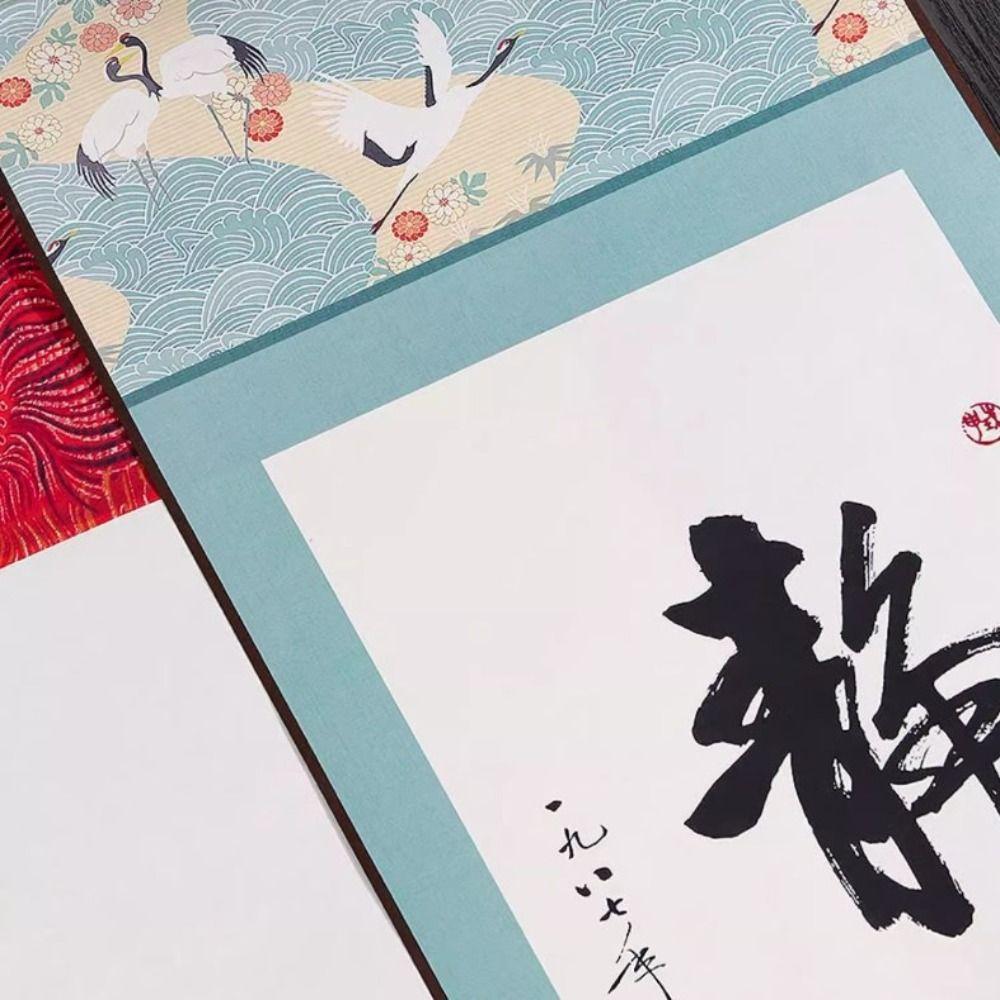 靜
一九八七年